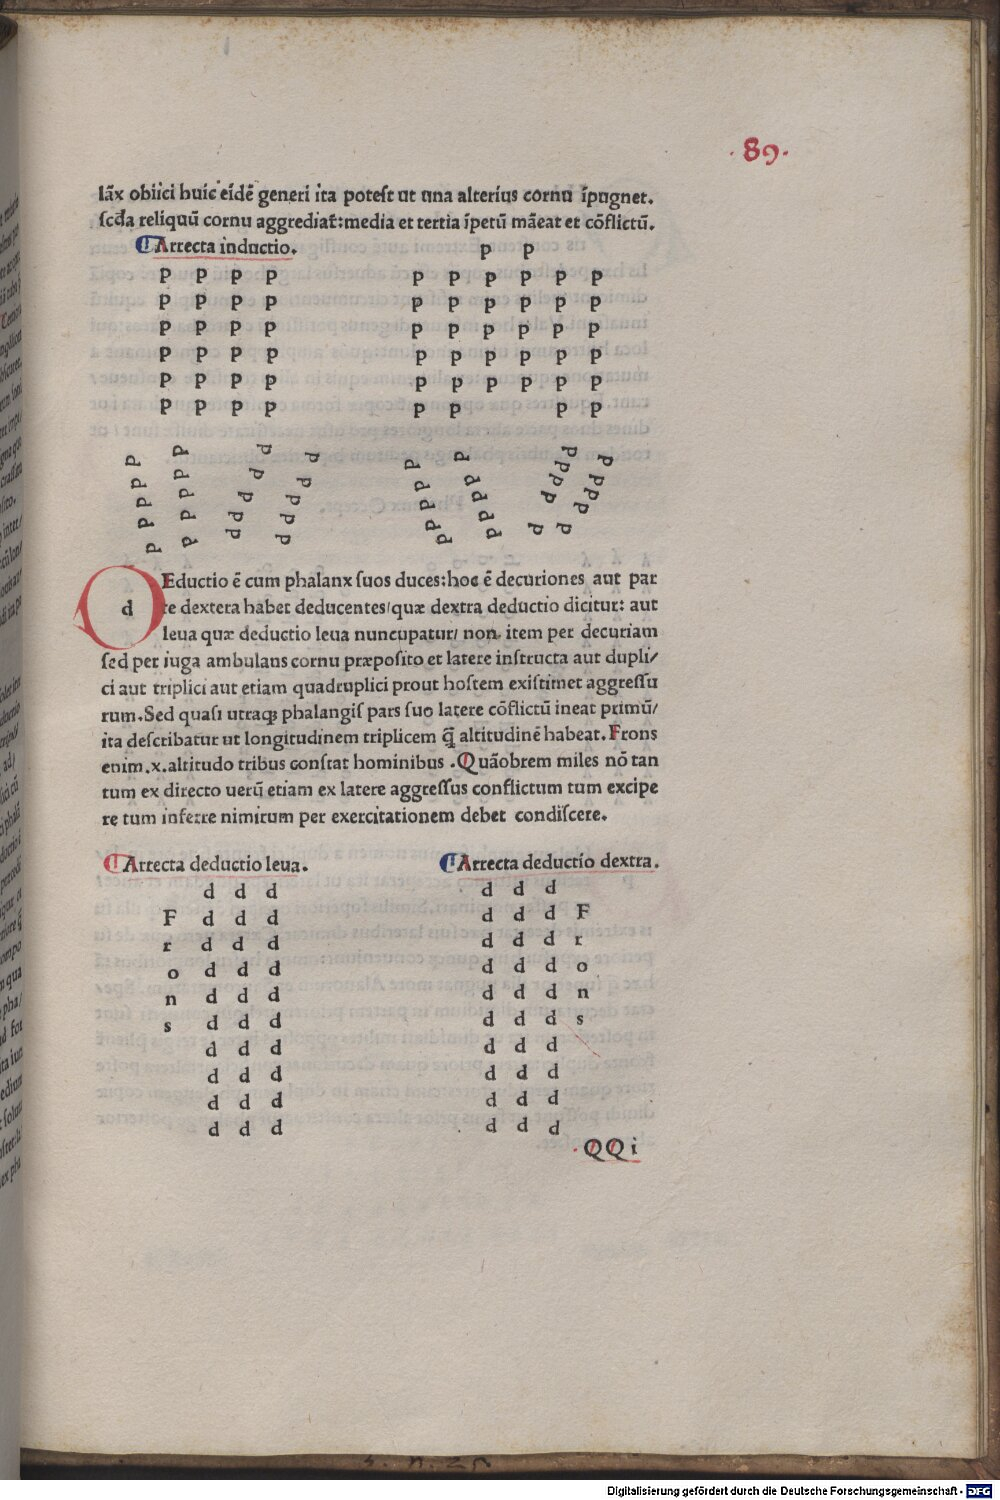 .89.
lãx obiici huic eidẽ generi ita potest ut una alterius cornu ĩpugnet.
scda reliquũ cornu aggrediat᷑: media et tertia ĩpetũ mãeat et cõflictũ.
Arrecta inductio.
p p
p p p p p p p p p p
p p p p p p p p p p
p p p p p p p p p p
p p p p p p p p p p
p p p p p p p p p p
p p p p p p p p
p p p p p p p p
p p p p p p p p
p p p p p p p p
p p p p p p p p
p p p p p p p p
d
Eductio ẽ cum phalanx suos duces: hoc ẽ decuriones aut par
te dextera habet deducentes/ quæ dextra deductio dicitur: aut
leua quæ deductio leua nuncupatur/ non item per decuriam
sed per iuga ambulans cornu præposito et latere instructa aut dupli/
ci aut triplici aut etiam quadruplici prout hostem existimet aggressu
rum. Sed quasi utraqꝫ phalangis pars suo latere cõflictũ ineat primũ/
ita describatur ut longitudinem triplicem q̃ altitudinẽ habeat. Frons
enim .x. altitudo tribus constat hominibus. Quãobrem miles nõ tan
tum ex directo uerũ etiam ex latere aggressus conflictum tum excipe
re tum inferre nimirum per exercitationem debet condiscere.
Arrecta deductio leua. Arrecta deductio dextra.
d d d d d d
F d d d d d d F
r d d d d d d r
o d d d d d d o
n d d d d d d n
s d d d d d d s
d d d d d d
d d d d d d
d d d d d d
d d d d d d
QQ i
Digitalisierung gefördert durch die Deutsche Forschungsgemeinschaft - DFG